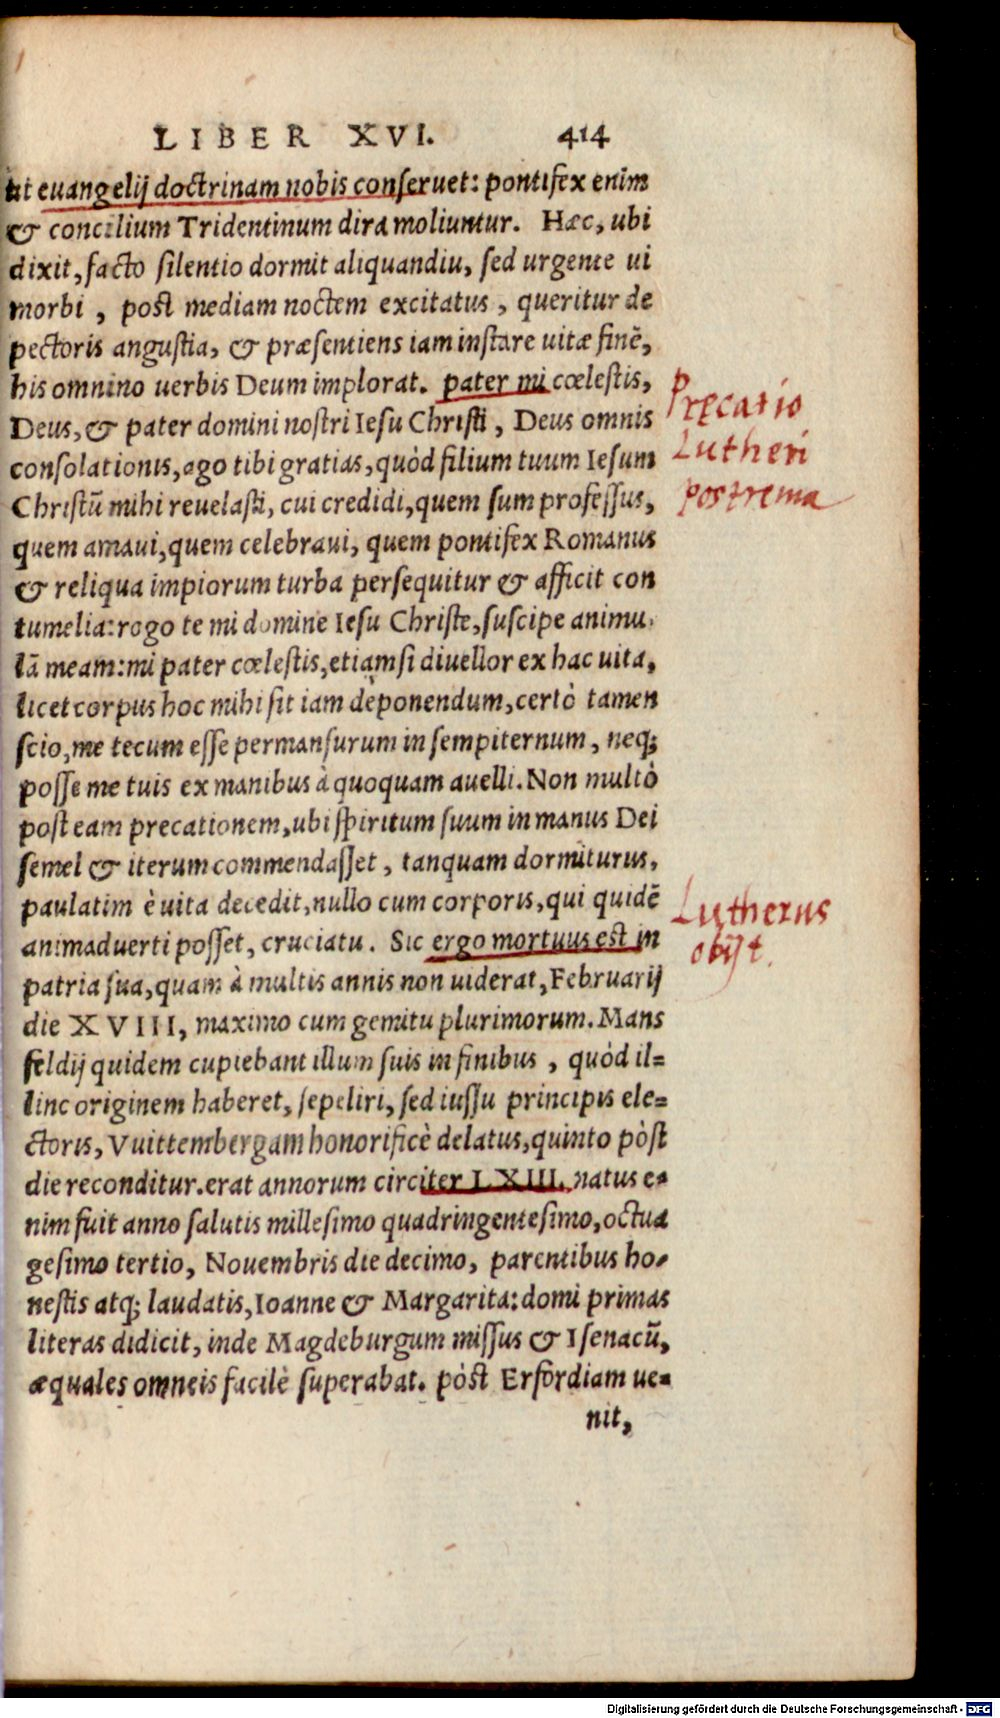 LIBER XVI. 414
ut euangelij doctrinam nobis conseruet: pontifex enim
& concilium Tridentinum dira moliuntur. Hæc, ubi
dixit, facto silentio dormit aliquandiu, sed urgente ui
morbi, post mediam noctem excitatus, queritur de
pectoris angustia, & præsentiens iam instare uitæ finē,
his omnino uerbis Deum implorat. pater mi cœlestis,
Deus, & pater domini nostri Iesu Christi, Deus omnis
consolationis, ago tibi gratias, quòd filium tuum Iesum
Christū mihi reuelasti, cui credidi, quem sum professus,
quem amaui, quem celebraui, quem pontifex Romanus
& reliqua impiorum turba persequitur & afficit con
tumelia: rogo te mi domine Iesu Christe, suscipe animu
lā meam: mi pater cœlestis, etiamsi diuellor ex hac uita,
licet corpus hoc mihi sit iam deponendum, certò tamen
scio, me tecum esse permansurum in sempiternum, neq;
posse me tuis ex manibus à quoquam auelli. Non multò
post eam precationem, ubi spiritum suum in manus Dei
semel & iterum commendasset, tanquam dormiturus,
paulatim è uita decedit, nullo cum corporis, qui quidē
animaduerti posset, cruciatu. Sic ergo mortuus est in
patria sua, quam à multis annis non uiderat, Februarij
die XVIII, maximo cum gemitu plurimorum. Mans
feldij quidem cupiebant illum suis in finibus, quòd il=
linc originem haberet, sepeliri, sed iussu principis ele=
ctoris, Vuittembergam honorificè delatus, quinto pòst
die reconditur. erat annorum circiter LXIII. natus e=
nim fuit anno salutis millesimo quadringentesimo, octua
gesimo tertio, Nouembris die decimo, parentibus ho=
nestis atq; laudatis, Ioanne & Margarita: domi primas
literas didicit, inde Magdeburgum missus & Isenacū,
æquales omneis facilè superabat. pòst Erfordiam ue=
nit,
Pręcatio
Lutheri
postrema
Lutherus
obijt.
Digitalisierung gefördert durch die Deutsche Forschungsgemeinschaft - DFG